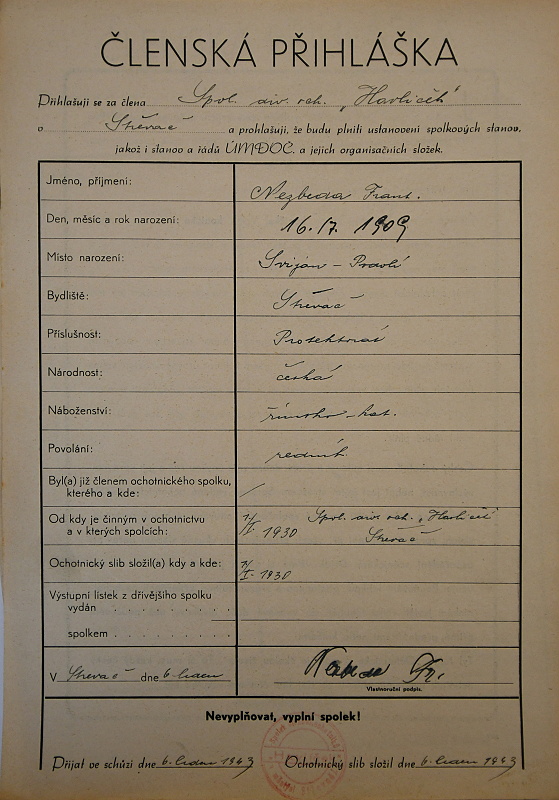 ČLENSKÁ PŘIHLÁŠKA
Přihlašuji se za člena Spol. div. och. „Havlíček"
v Střevač a prohlašuji, že budu plniti ustanovení spolkových stanov,
jakož i stanov a řádů ÚMDOČ. a jejich organisačních složek.
Jméno, příjmení: Nezbeda Frant.
Den, měsíc a rok narození: 16./7. 1909
Místo narození: Svijan – 
Bydliště: Střevač
Příslušnost: Protektorát
Národnost: česká
Náboženství: římsko-kat.
Povolání: redník
Byl(a) již členem ochotnického spolku,
kterého a kde: /
Od kdy je činným v ochotnictvu
a v kterých spolcích: 1/I. 1930 Spol. div. och. „Havlíček"
Střevač
Ochotnický slib složil(a) kdy a kde: 1/I. 1930
Výstupní lístek z dřívějšího spolku
vydán . . . . . . . . . .
spolkem . . . . . . . . . .
V Střevač dne 6. leden
Vlastnoruční podpis.
Nevyplňovat, vyplní spolek!
Přijat ve schůzi dne 6. leden 1943 Ochotnický slib složil dne 6. leden 1943